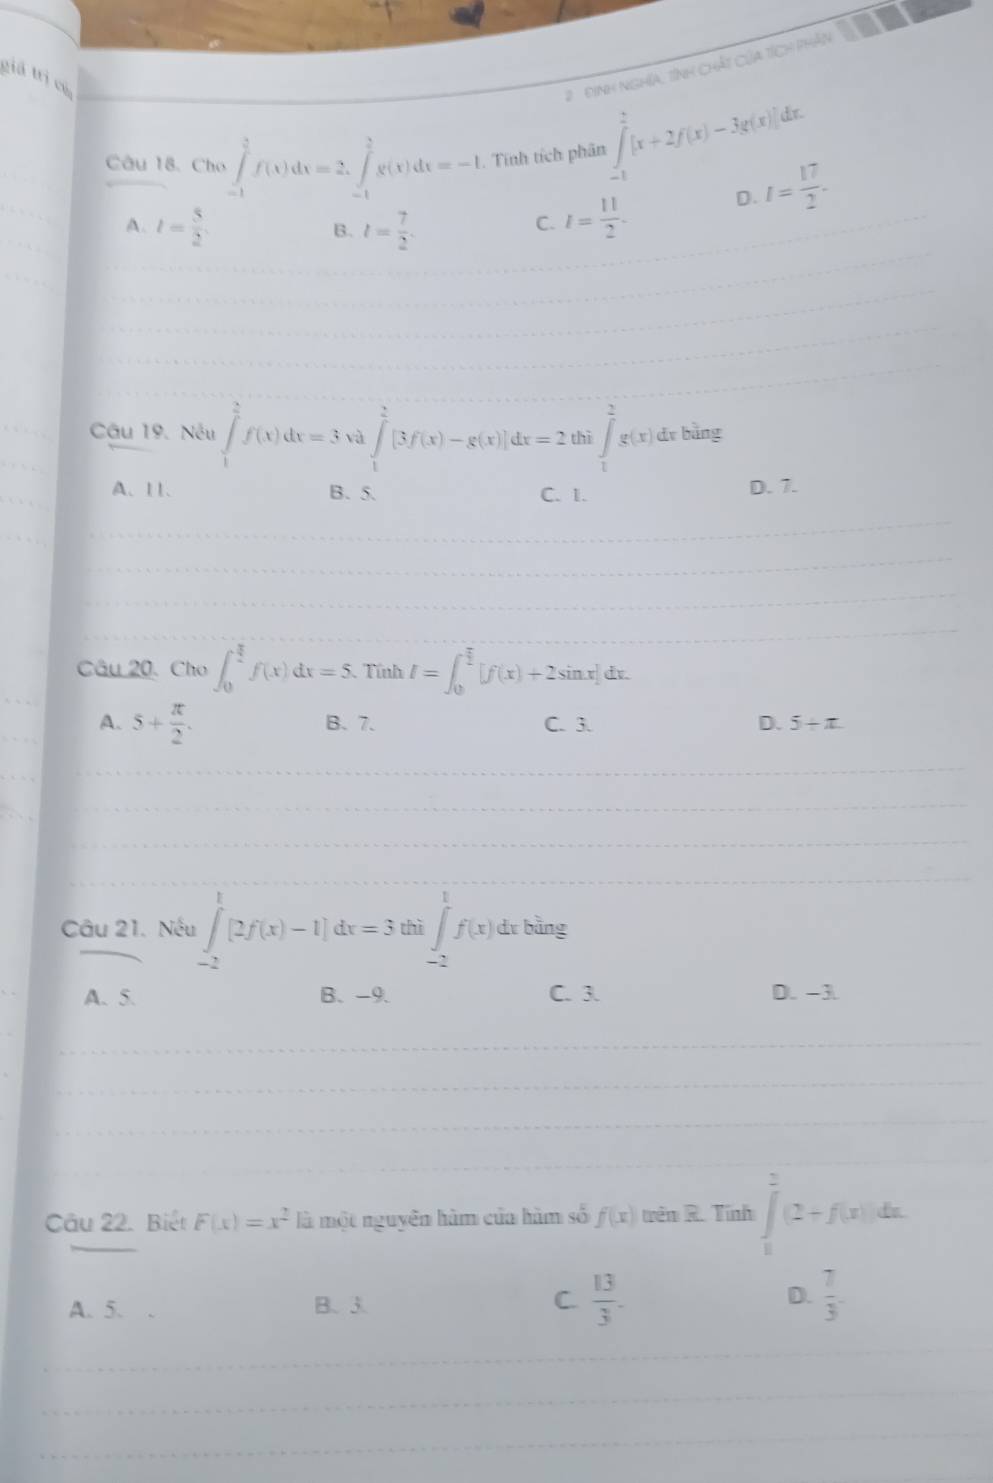 giá trị của
2 ĐỊNH NGHĨA, TÍNH CHẤT CỦA TÍCH PHÂN
Câu 18. Cho ∫_{-1}^{2} f(x) dx = 2, ∫_{-1}^{2} g(x) dx = −1. Tính tích phân ∫_{-1}^{2} [x + 2f(x) − 3g(x)] dx.
A. I = 5/2. B. I = 7/2. C. I = 11/2. D. I = 17/2.
Câu 19. Nếu ∫_{1}^{2} f(x) dx = 3 và ∫_{1}^{2} [3f(x) − g(x)] dx = 2 thì ∫_{1}^{2} g(x) dx bằng
A. 11. B. 5. C. 1. D. 7.
Câu 20. Cho ∫_{0}^{π/2} f(x) dx = 5. Tính I = ∫_{0}^{π/2} [f(x) + 2 sin x] dx.
A. 5 + π/2. B. 7. C. 3. D. 5 + π.
Câu 21. Nếu ∫_{-2}^{1} [2f(x) − 1] dx = 3 thì ∫_{-2}^{1} f(x) dx bằng
A. 5. B. −9. C. 3. D. −3.
Câu 22. Biết F(x) = x² là một nguyên hàm của hàm số f(x) trên ℝ. Tính ∫_{1}^{2} (2 + f(x)) dx.
A. 5. B. 3. C. 13/3. D. 7/3.